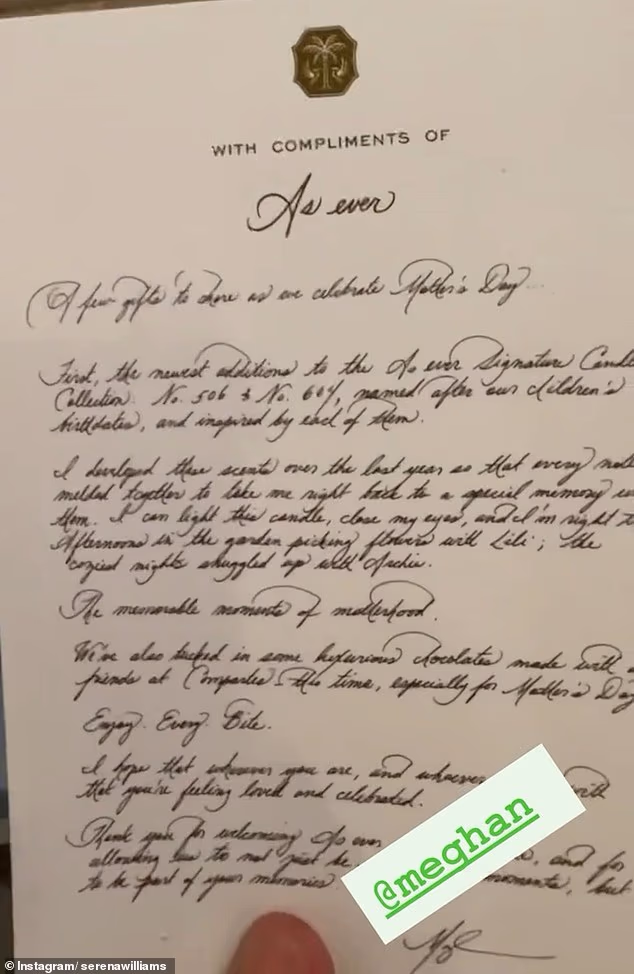 WITH COMPLIMENTS OF
As ever
A few gifts to share as we celebrate Mother's Day...
First, the newest additions to the As ever Signature Candle
Collection. No. 506 & No. 604, named after our children's
birthdates, and inspired by each of them.
I developed these scents over the last year so that every note
melded together to take me right back to a special memory
them. I can light this candle, close my eyes, and I'm right
Afternoons in the garden picking flowers with Lili; the
coziest nights snuggled up with Archie.
The memorable moments of motherhood.
We've also tucked in some luxurious chocolates made with
friends at Compartés this time, especially for Mother's Day
Enjoy. Every. Bite.
I hope that wherever you are, and whoever with
that you're feeling loved and celebrated.
Thank you for welcoming As ever
allowing us to not just be , and for
to be part of your memories. moments, but
@meghan
© Instagram/ serenawilliams